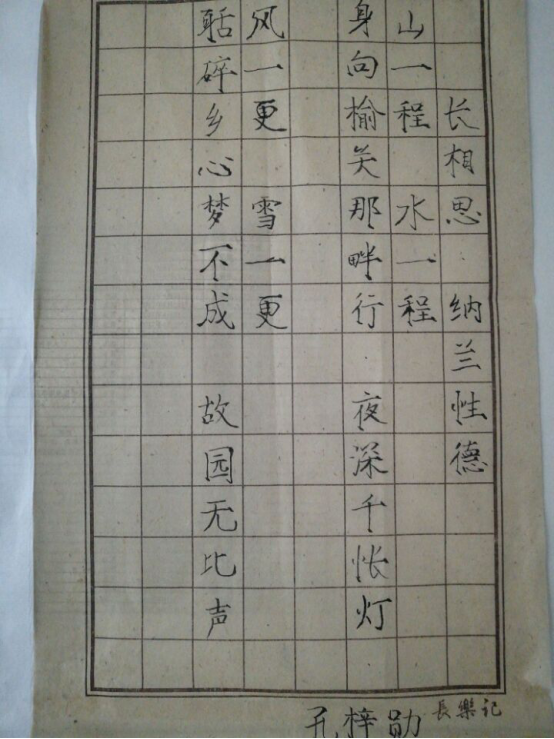 长相思 纳兰性德
山一程 水一程
身向榆关那畔行 夜深千怅灯
风一更 雪一更
聒碎乡心梦不成 故园无比声
孔梓勋
長樂记